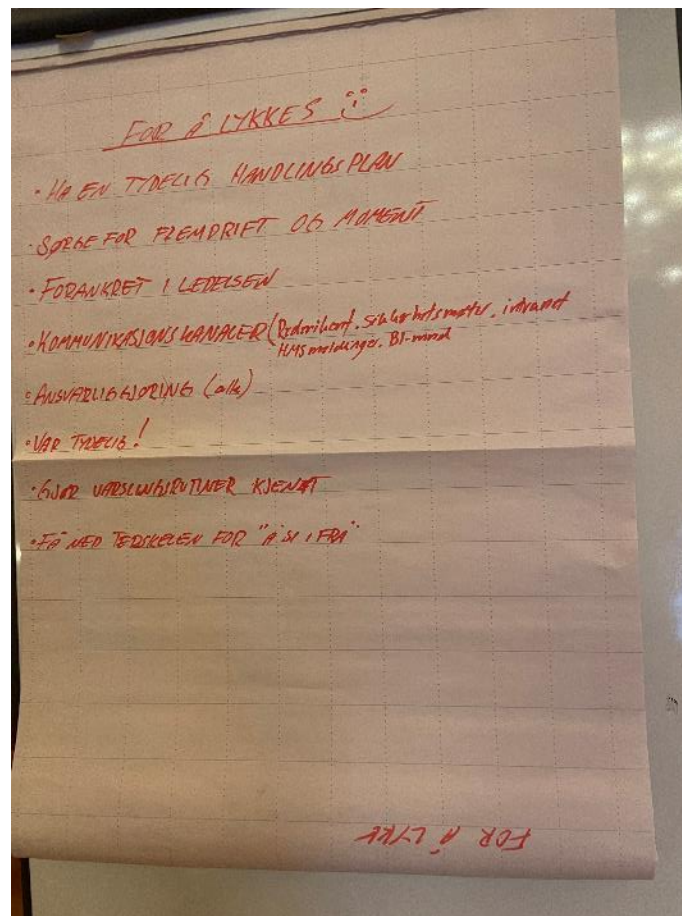 FOR Å LYKKES
• HA EN TYDELIG HANDLINGSPLAN
• SØRGE FOR FREMDRIFT OG MOMENT
• FORANKRET I LEDELSEN
• KOMMUNIKASJONSKANALER (Rederikont. Sikkerhetsmøter, intranet
HMS meldinger. BI-mød
• ANSVARLIGGJØRING (alle)
• VÆR TYDELIG!
• GJØR VARSLINGSRUTINER KJENDT
• FÅ NED TERSKELEN FOR "Å SI I FRA"
FOR Å LYKK